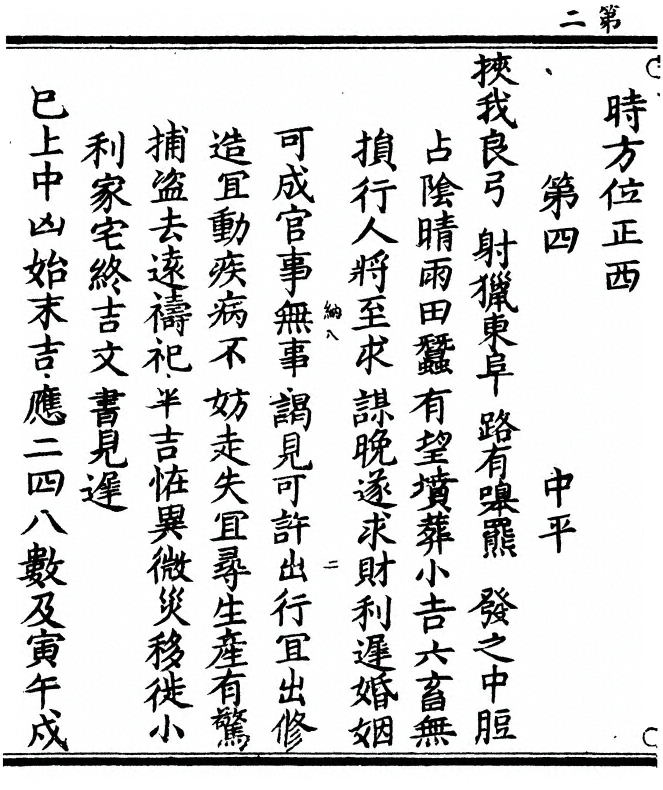 第二
時方位正西
第四 中平
挾我良弓 射獵東阜 路有嘷羆 發之中脰
占陰晴雨田蠶有望墳葬小吉六畜無
損行人將至求謀晚遂求財利遲婚姻
納入
可成官事無事謁見可許出行冝出修
二
造冝動疾病不妨走失冝尋生產有驚
捕盜去遠禱祀半吉恠異微災移徙小
利家宅終吉文書見遲
巳上中凶始末吉應二四八數及寅午戍